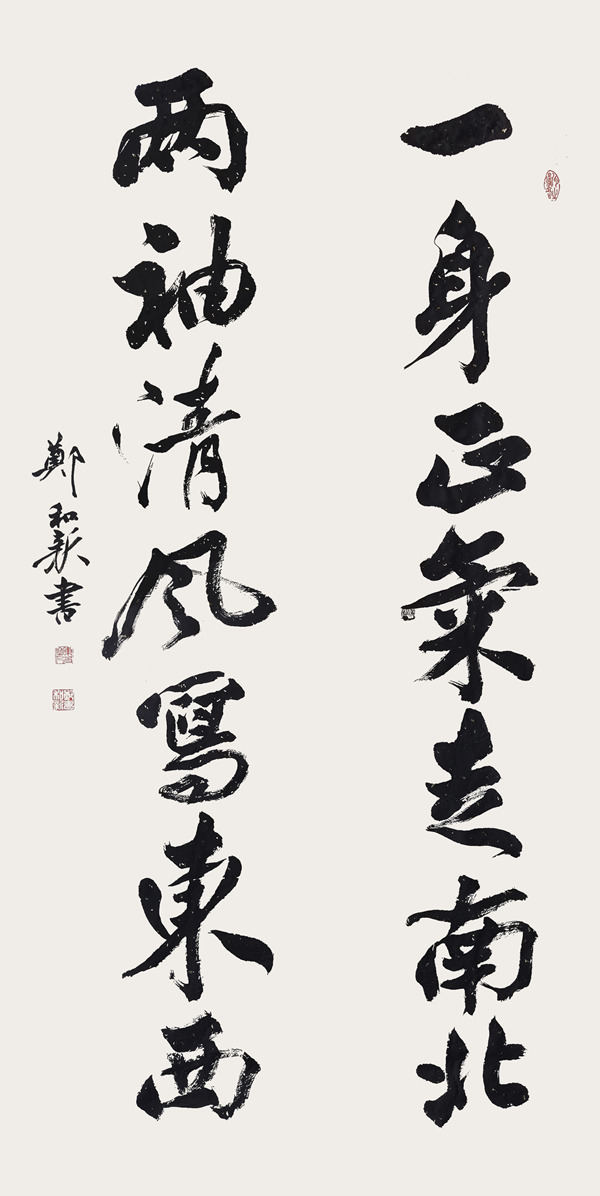 一身正氣走南北
两袖清风寫東西
鄭和新書